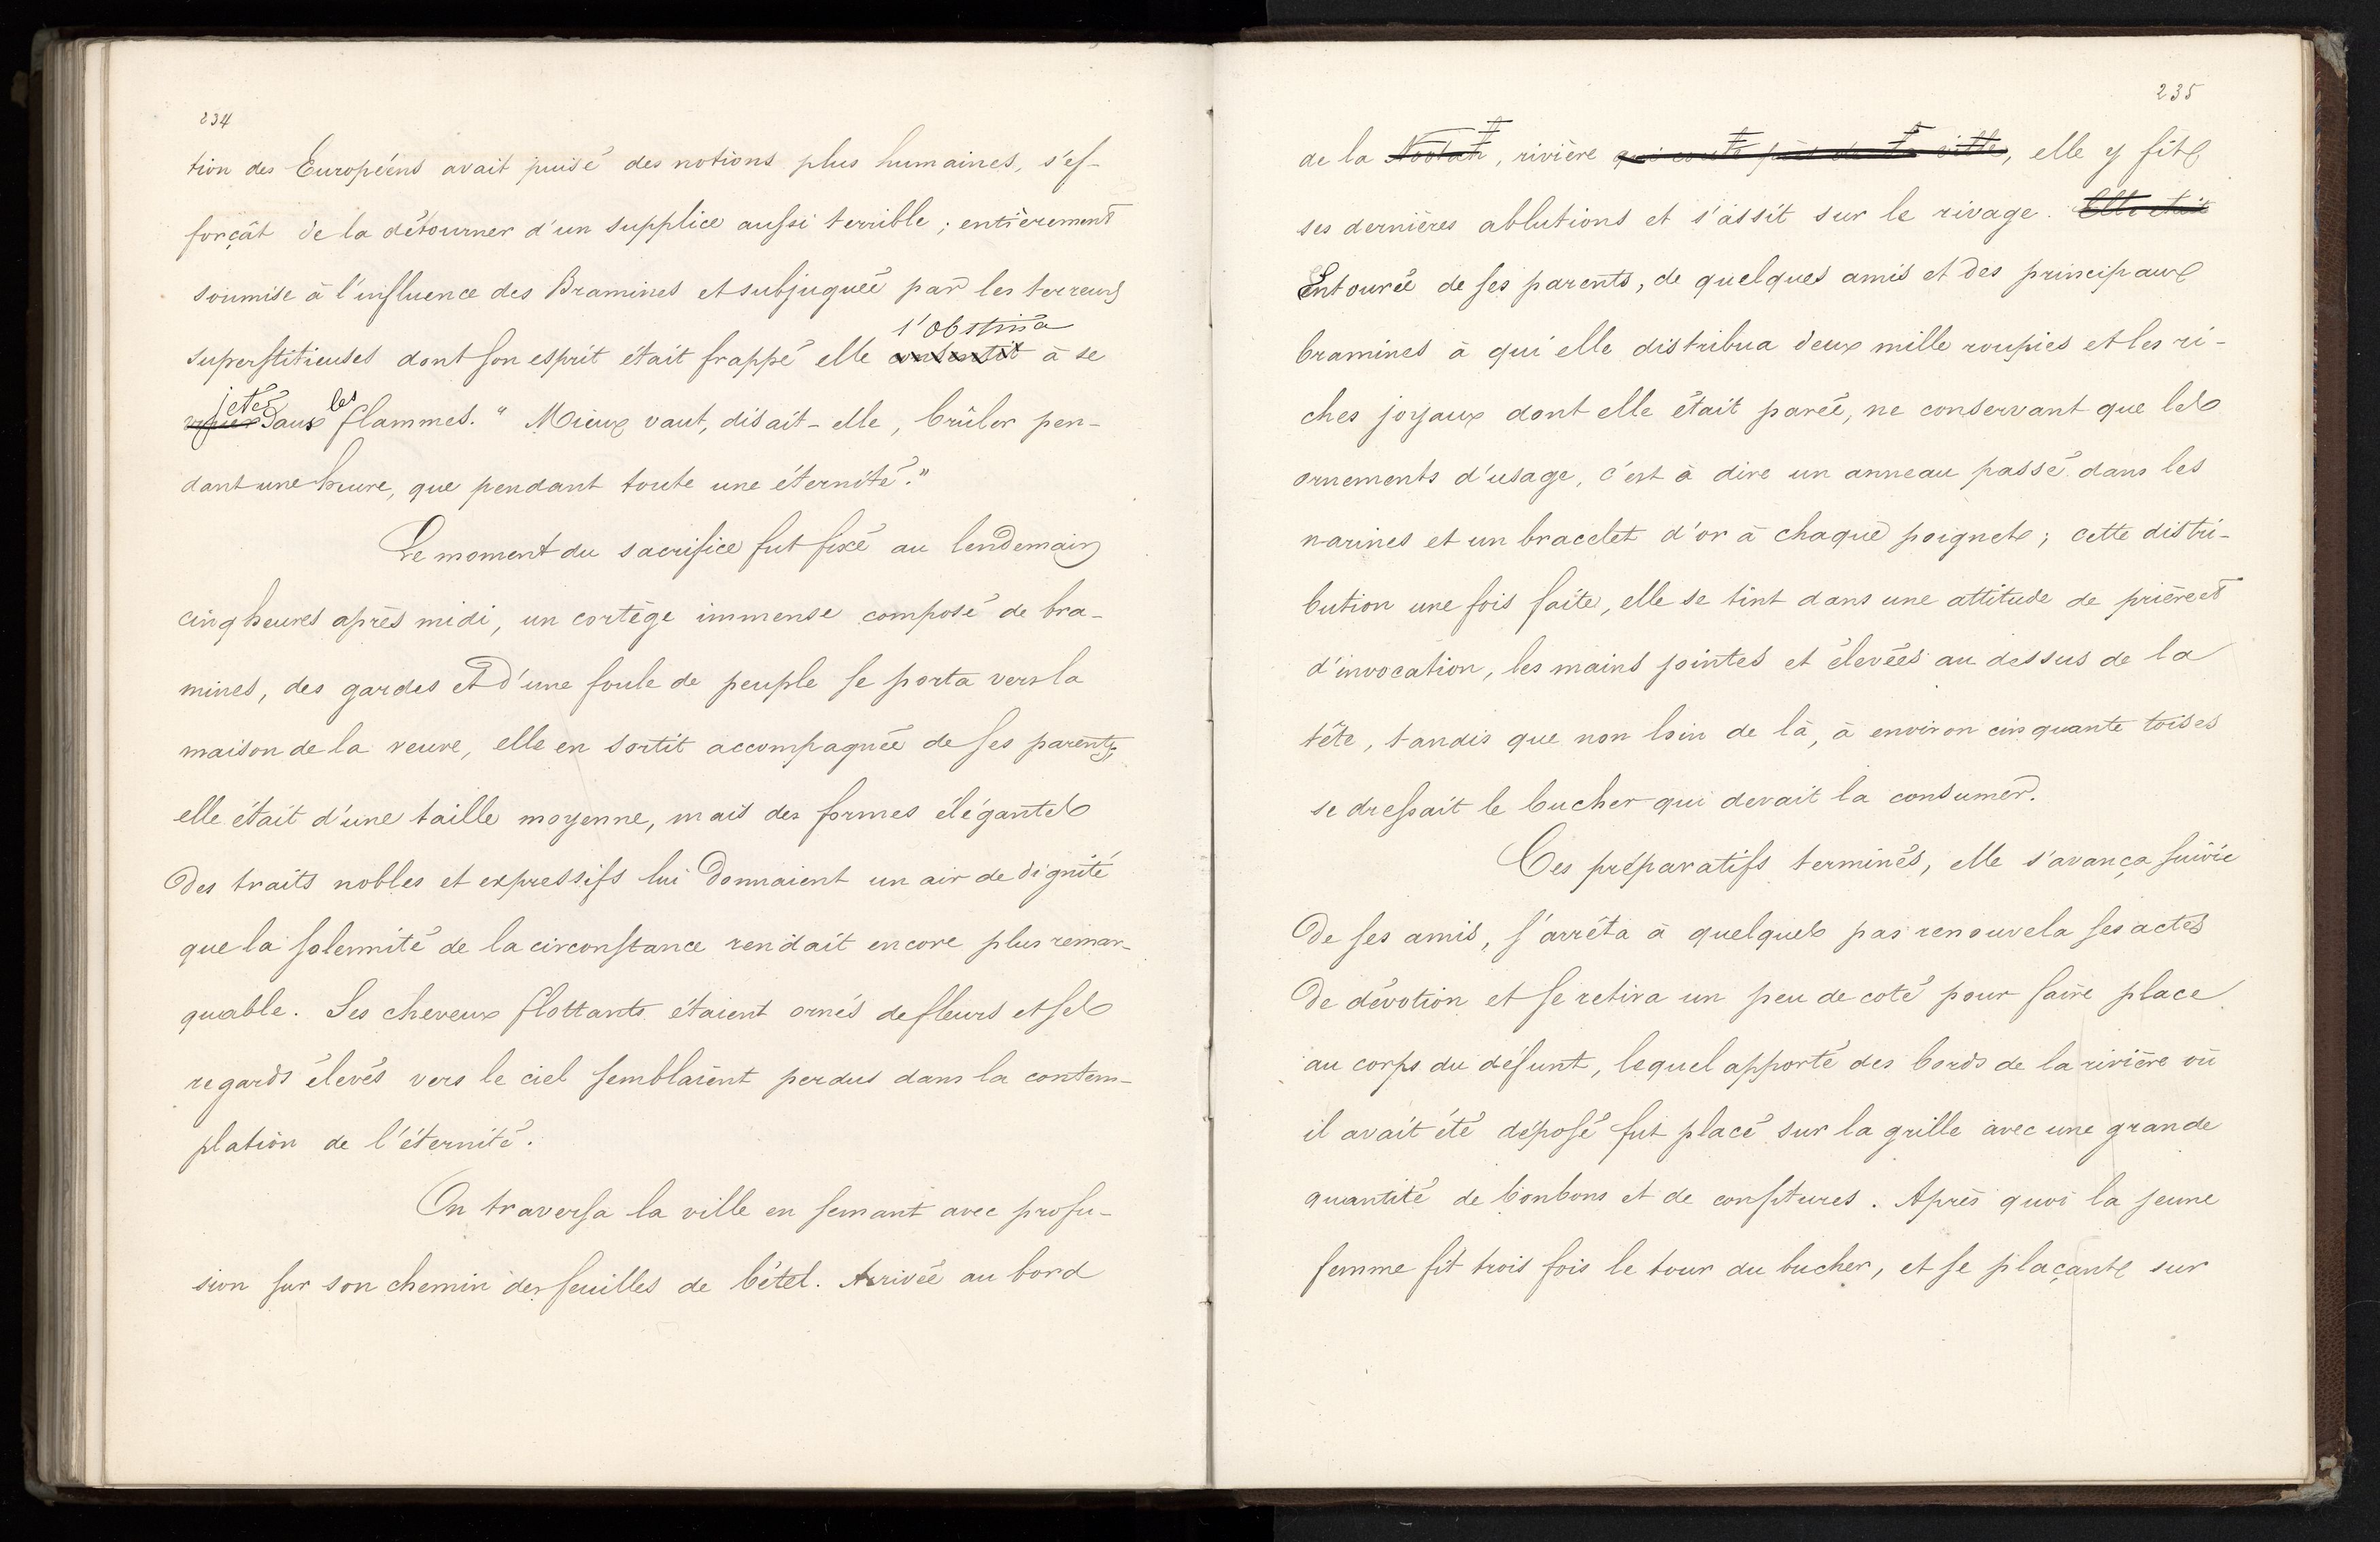 234
tion des Européens avait puisé des notions plus humaines, s'ef-
forçât de la détourner d'un supplice aussi terrible ; entièrement
soumise à l'influence des Bramines et subjuguée par les terreurs
s'obstina
superstitieuses dont son esprit était frappé elle consentit à se
jeter les
dans flammes. " Mieux vaut, disait-elle, brûler pen-
dant une heure, que pendant toute une éternité."
Le moment du sacrifice fut fixé au lendemain
cinq heures après midi, un cortège immense composé de bra-
mines, des gardes et d'une foule de peuple se porta vers la
maison de la veuve, elle en sortit accompagnée de ses parents,
elle était d'une taille moyenne, mais des formes élégantes
des traits nobles et expressifs lui donnaient un air de dignité
que la solennité de la circonstance rendait encore plus remar-
quable. Ses cheveux flottants étaient ornés de fleurs et ses
regards élevés vers le ciel semblaient perdus dans la contem-
plation de l'éternité.
On traversa la ville en semant avec profu-
sion sur son chemin des feuilles de bétel. Arrivée au bord
235
de la , rivière qui coule près de la ville, elle y fit
ses dernières ablutions et s'assit sur le rivage. Elle était
Entourée de ses parents, de quelques amis et des principaux
bramines à qui elle distribua deux mille roupies et les ri-
ches joyaux dont elle était parée, ne conservant que les
ornements d'usage, c'est à dire un anneau passé dans les
narines et un bracelet d'or à chaque poignet ; cette distri-
bution une fois faite, elle se tint dans une attitude de prière et
d'invocation, les mains jointes et élevées au dessus de la
tête, tandis que non loin de là, à environ cinquante toises
se dressait le bucher qui devait la consumer.
Ces préparatifs terminés, elle s'avança suivie
de ses amis, s'arrêta à quelques pas renouvela ses actes
de dévotion et se retira un peu de coté pour faire place
au corps du défunt, lequel apporté des bords de la rivière où
il avait été déposé fut placé sur la grille avec une grande
quantité de bonbons et de confitures. Après quoi la jeune
femme fit trois fois le tour du bucher, et se plaçant sur